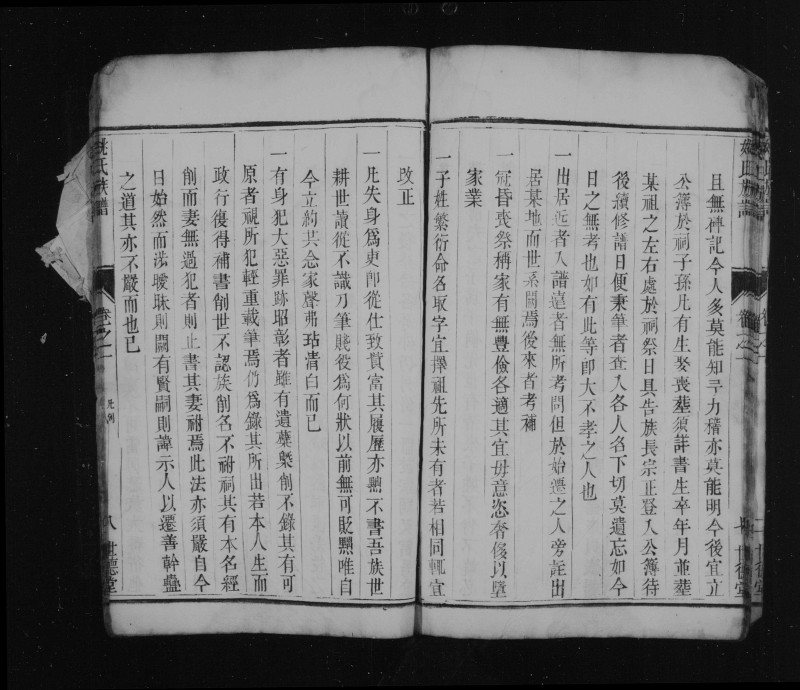 且無碑記今人多莫能知尋力稽亦莫能明今後宜立
公簿於祠子孫凡有生娶喪塟須詳書生卒年月並塟
某祖之左右處於祠祭日具告族長宗正登入公簿待
後續修譜日便秉筆者查入各人名下切莫遺忘如今
日之無考也如有此等即大不孝之人也
一出居近者入譜遠者無所考問但於始遷之人旁註出
居某地而世系闕焉後來者考補
一冠昏喪祭稱家有無豐儉各適其宜毋意恣奢侈以墮
家業
一子姓繁衍命名取字宜擇祖先所未有者若相同輒宜
改正
一凡失身爲吏卽從仕致貴富其履歷亦黜不書吾族世
耕世讀從不識刀筆賤役爲何狀以前無可貶黜唯自
今立約共念家聲弗玷清白而已
一有身犯大惡罪跡昭彰者雖有遺藁槩削不錄其有可
原者視所犯輕重載筆焉仍爲錄其所出若本人生而
政行復得補書削世不認族削名不祔祠其有本名經
削而妻無過犯者則止書其妻祔焉此法亦須嚴自今
日始然而涉曖昧則闕有賢嗣則諱示人以遷善幹蠱
之道其亦不嚴而也已
姚氏族譜
卷之一
凡例
八
世德堂